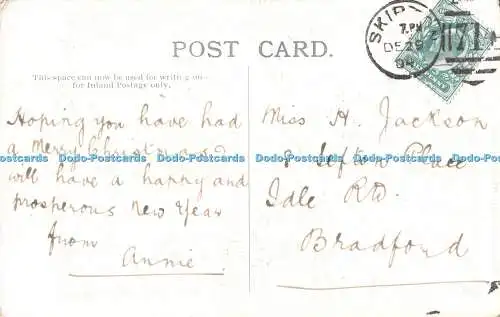 POST CARD.
This space can now be used for writing on
for Inland Postage only.
Hoping you have had
a Merry Christmas and
will have a happy and
prosperous New Year
from
Annie.
Miss H. Jackson
Sefton Place
Idle Rd.
Bradford
SKIP
7.PM
DE 29
04
71
Dodo-Postcards Dodo-Postcards Dodo-Postcards Dodo-Postcards Dodo-Postcards Dodo-Postcards